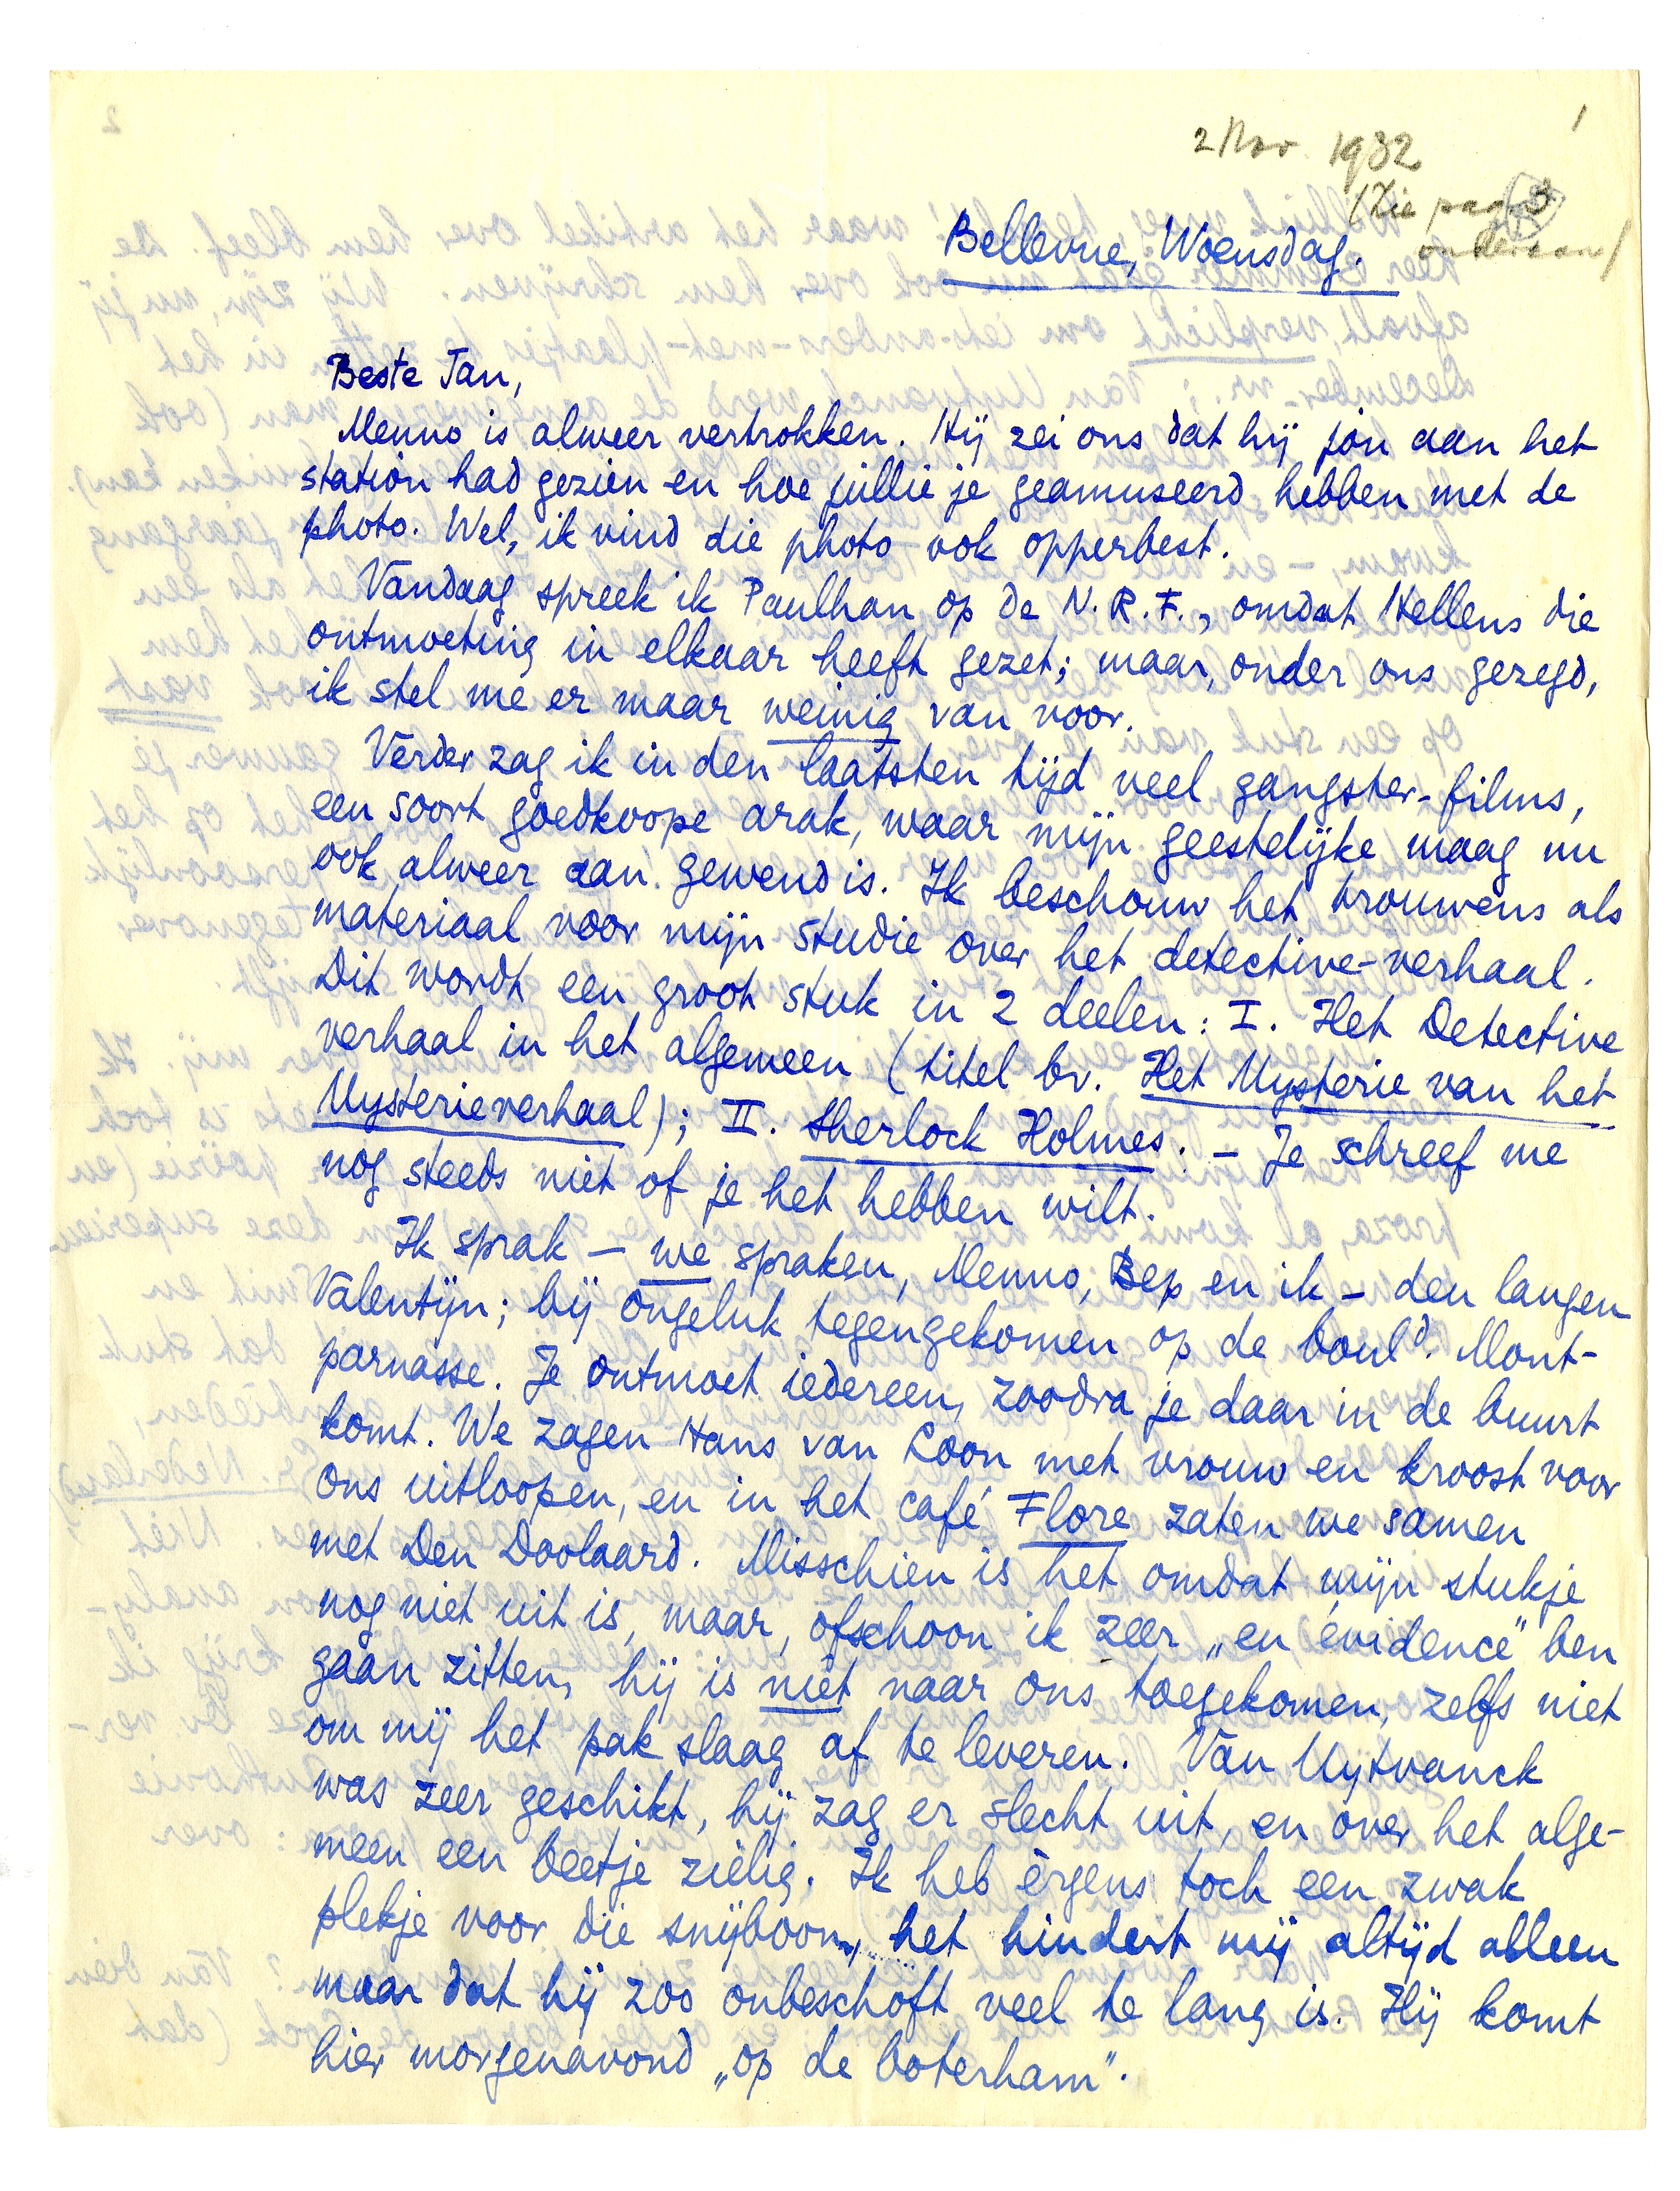 1
2 Nov. 1932
(Zie pag 3
onderaan)
Bellevue, Woensdag.
Beste Jan,
Menno is alweer vertrokken. Hij zei ons dat hij jou aan het
station had gezien en hoe jullie je geamuseerd hebben met de
photo. Wel, ik vind die photo ook opperbest.
Vandaag spreek ik Paulhan op de N.R.F., omdat Hellens die
ontmoeting in elkaar heeft gezet; maar, onder ons gezegd,
ik stel me er maar weinig van voor.
Verder zag ik in den laatsten tijd veel gangster-films,
een soort goedkoope arak, waar mijn geestelijke maag nu
ook alweer aan gewend is. Ik beschouw het trouwens als
materiaal voor mijn studie over het detective-verhaal.
Dit wordt een groot stuk in 2 deelen: I. Het Detective
verhaal in het algemeen (titel bv. Het Mysterie van het
Mysterieverhaal); II. Sherlock Holmes. – Je schreef me
nog steeds niet of je het hebben wilt.
Ik sprak – we spraken, Menno, Bep en ik – den langen
Valentijn; bij ongeluk tegengekomen op de boul^d. Mont-
parnasse. Je ontmoet iedereen, zoodra je daar in de buurt
komt. We zagen Hans van Loon met vrouw en kroost voor
ons uitloopen, en in het café Flore zaten we samen
met Den Doolaard. Misschien is het omdat mijn stukje
nog niet uit is, maar, ofschoon ik zeer „en évidence" ben
gaan zitten, hij is niet naar ons toegekomen, zelfs niet
om mij het pak slaag af te leveren. Van Uytvanck
was zeer geschikt, hij zag er slecht uit, en over het alge-
meen een beetje zielig. Ik heb èrgens toch een zwak
plekje voor die snijboon, het hindert mij altijd alleen
maar dat hij zoo onbeschoft veel te lang is. Hij komt
hier morgenavond „op de boterham".